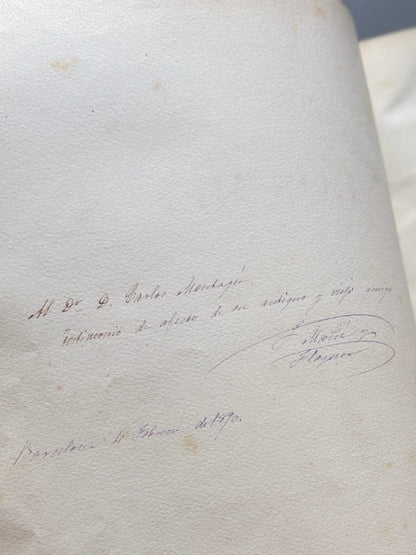 Al Dr. D. Carlos Montagú
testimonio de afecto de su antiguo y viejo amigo
Mañé y
Flaquer
Barcelona 4 Febrero de 1890.